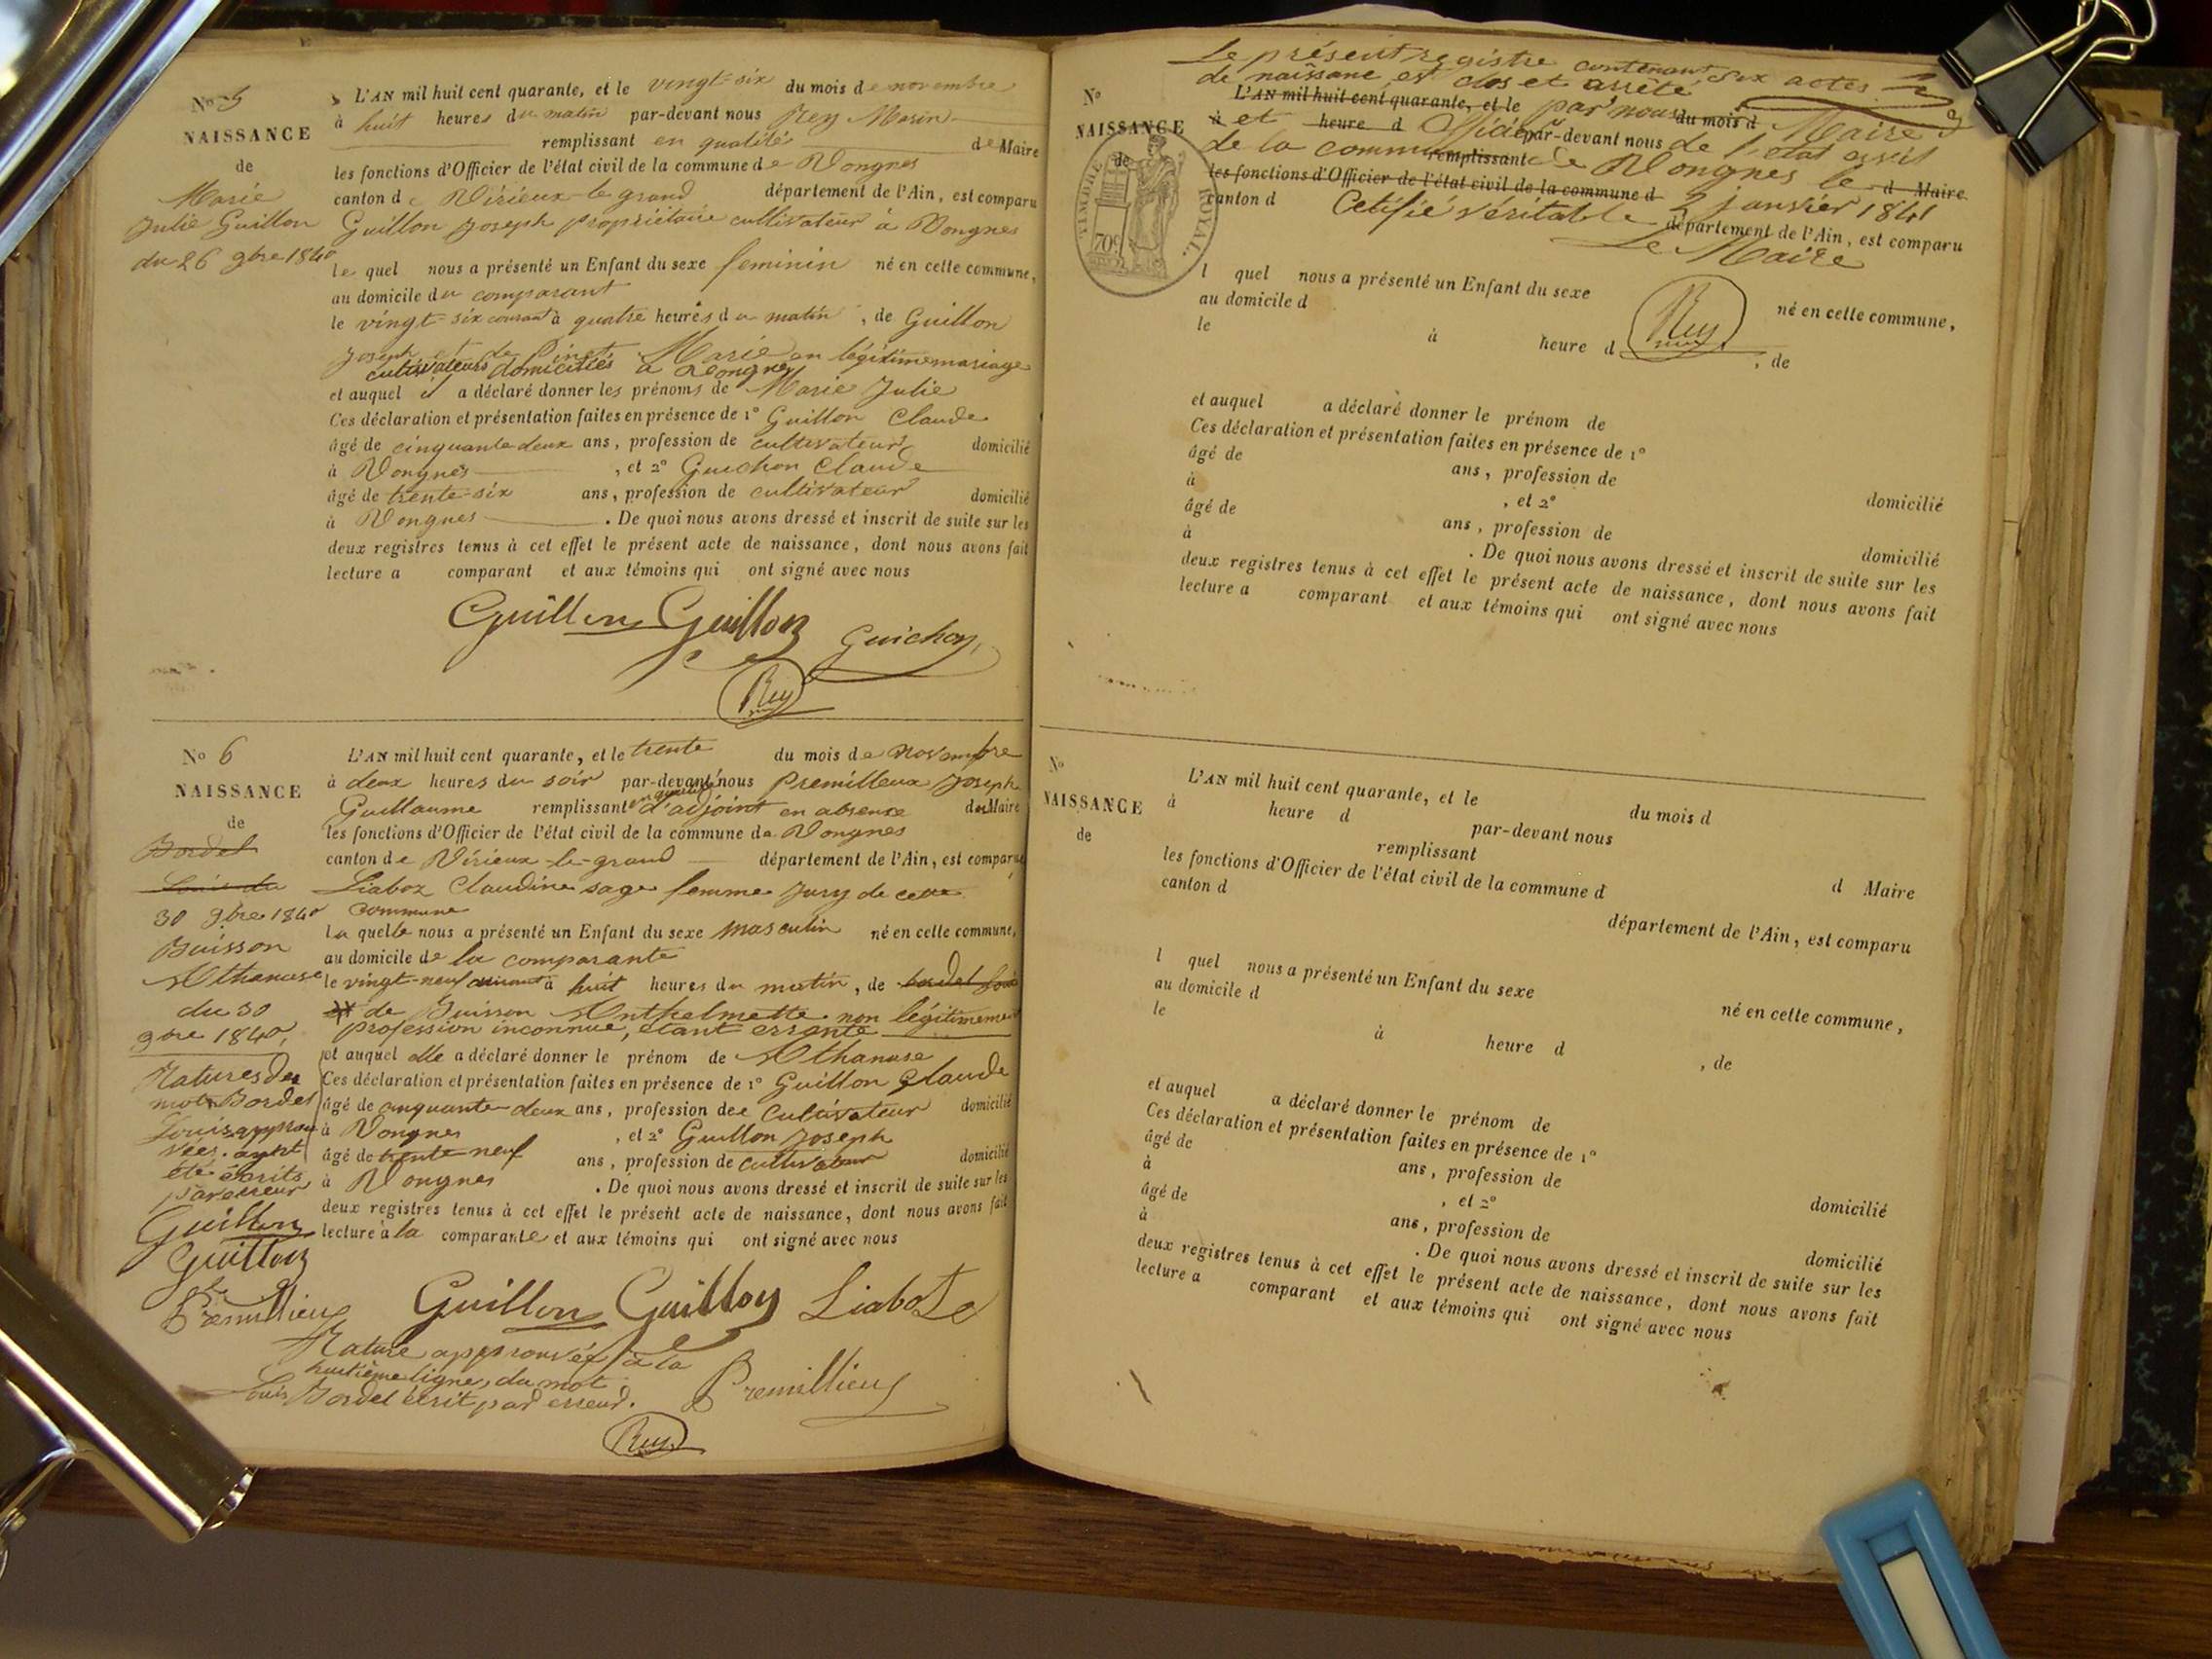 N° 5
NAISSANCE
de
Marie
Julie Guillon
du 26 9bre 1840
L'AN mil huit cent quarante, et le vingt-six du mois de novembre
à huit heures du matin par-devant nous Rey Marin
remplissant en qualité de Maire
les fonctions d'Officier de l'état civil de la commune de Vongnes
canton de Virieux-le-grand département de l'Ain, est comparu
Guillon Joseph propriétaire cultivateur à Vongnes
le quel nous a présenté un Enfant du sexe feminin né en cette commune,
au domicile du comparant
le vingt-six courant à quatre heures du matin, de Guillon
Joseph et de Pinet Marie en légitime mariage
cultivateurs domiciliés à Vongnes
et auquel il a déclaré donner les prénoms de Marie Julie
Ces déclaration et présentation faites en présence de 1° Guillon Claude
âgé de cinquante-deux ans, profession de cultivateur domicilié
à Vongnes, et 2° Guichon Claude
âgé de trente-six ans, profession de cultivateur domicilié
à Vongnes. De quoi nous avons dressé et inscrit de suite sur les
deux registres tenus à cet effet le présent acte de naissance, dont nous avons fait
lecture a comparant et aux témoins qui ont signé avec nous
Guillon Guillon Guichon
Rey
N° 6
NAISSANCE
de
Bordel
Louis du
30 9bre 1840
Buisson
Athanase
du 30
9bre 1840,
Ratures des
mots Bordel
Louis approu
vées. ayant
été écrits
par erreur
Guillon
Guillon
Premillieu
L'AN mil huit cent quarante, et le trente du mois de novembre
à deux heures du soir par-devant nous Premillieux Joseph
Guillaume remplissant en qualité d'adjoint en absence du Maire
les fonctions d'Officier de l'état civil de la commune de Vongnes
canton de Virieux-le-grand département de l'Ain, est comparue
Liaboz Claudine sage femme jury de cette
commune
la quelle nous a présenté un Enfant du sexe masculin né en cette commune,
au domicile de la comparante
le vingt-neuf courant à huit heures du matin, de bordel Louis
et de Buisson Anthelmette non légitimement
profession inconnue, étant errante
et auquel elle a déclaré donner le prénom de Athanase
Ces déclaration et présentation faites en présence de 1° Guillon Claude
âgé de cinquante-deux ans, profession de cultivateur domicilié
à Vongnes, et 2° Guillon Joseph
âgé de trente-neuf ans, profession de cultivateur domicilié
à Vongnes. De quoi nous avons dressé et inscrit de suite sur les
deux registres tenus à cet effet le présent acte de naissance, dont nous avons fait
lecture à la comparante et aux témoins qui ont signé avec nous
Guillon Guillon
Rature approuvée à la
huitième ligne, du mot
Louis Bordel écrit par erreur.
Premillieu
Rey
Le présent registre contenant six actes
de naissance, est clos et arrêté
par nous Maire
et Officier de l'état civil
de la commune de Vongnes le
2 janvier 1841
Certifié véritable
Le Maire
Rey
TIMBRE ROYAL.
70c
N°
NAISSANCE
de
L'AN mil huit cent quarante, et le du mois d
à heure d par-devant nous
remplissant d Maire
les fonctions d'Officier de l'état civil de la commune d
canton d département de l'Ain, est comparu
l quel nous a présenté un Enfant du sexe né en cette commune,
au domicile d
le à heure d , de
et auquel a déclaré donner le prénom de
Ces déclaration et présentation faites en présence de 1°
âgé de ans, profession de domicilié
à , et 2°
âgé de ans, profession de domicilié
à . De quoi nous avons dressé et inscrit de suite sur les
deux registres tenus à cet effet le présent acte de naissance, dont nous avons fait
lecture a comparant et aux témoins qui ont signé avec nous
N°
NAISSANCE
de
L'AN mil huit cent quarante, et le du mois d
à heure d par-devant nous
remplissant d Maire
les fonctions d'Officier de l'état civil de la commune d
canton d département de l'Ain, est comparu
l quel nous a présenté un Enfant du sexe né en cette commune,
au domicile d
le à heure d , de
et auquel a déclaré donner le prénom de
Ces déclaration et présentation faites en présence de 1°
âgé de ans, profession de domicilié
à , et 2°
âgé de ans, profession de domicilié
à . De quoi nous avons dressé et inscrit de suite sur les
deux registres tenus à cet effet le présent acte de naissance, dont nous avons fait
lecture a comparant et aux témoins qui ont signé avec nous